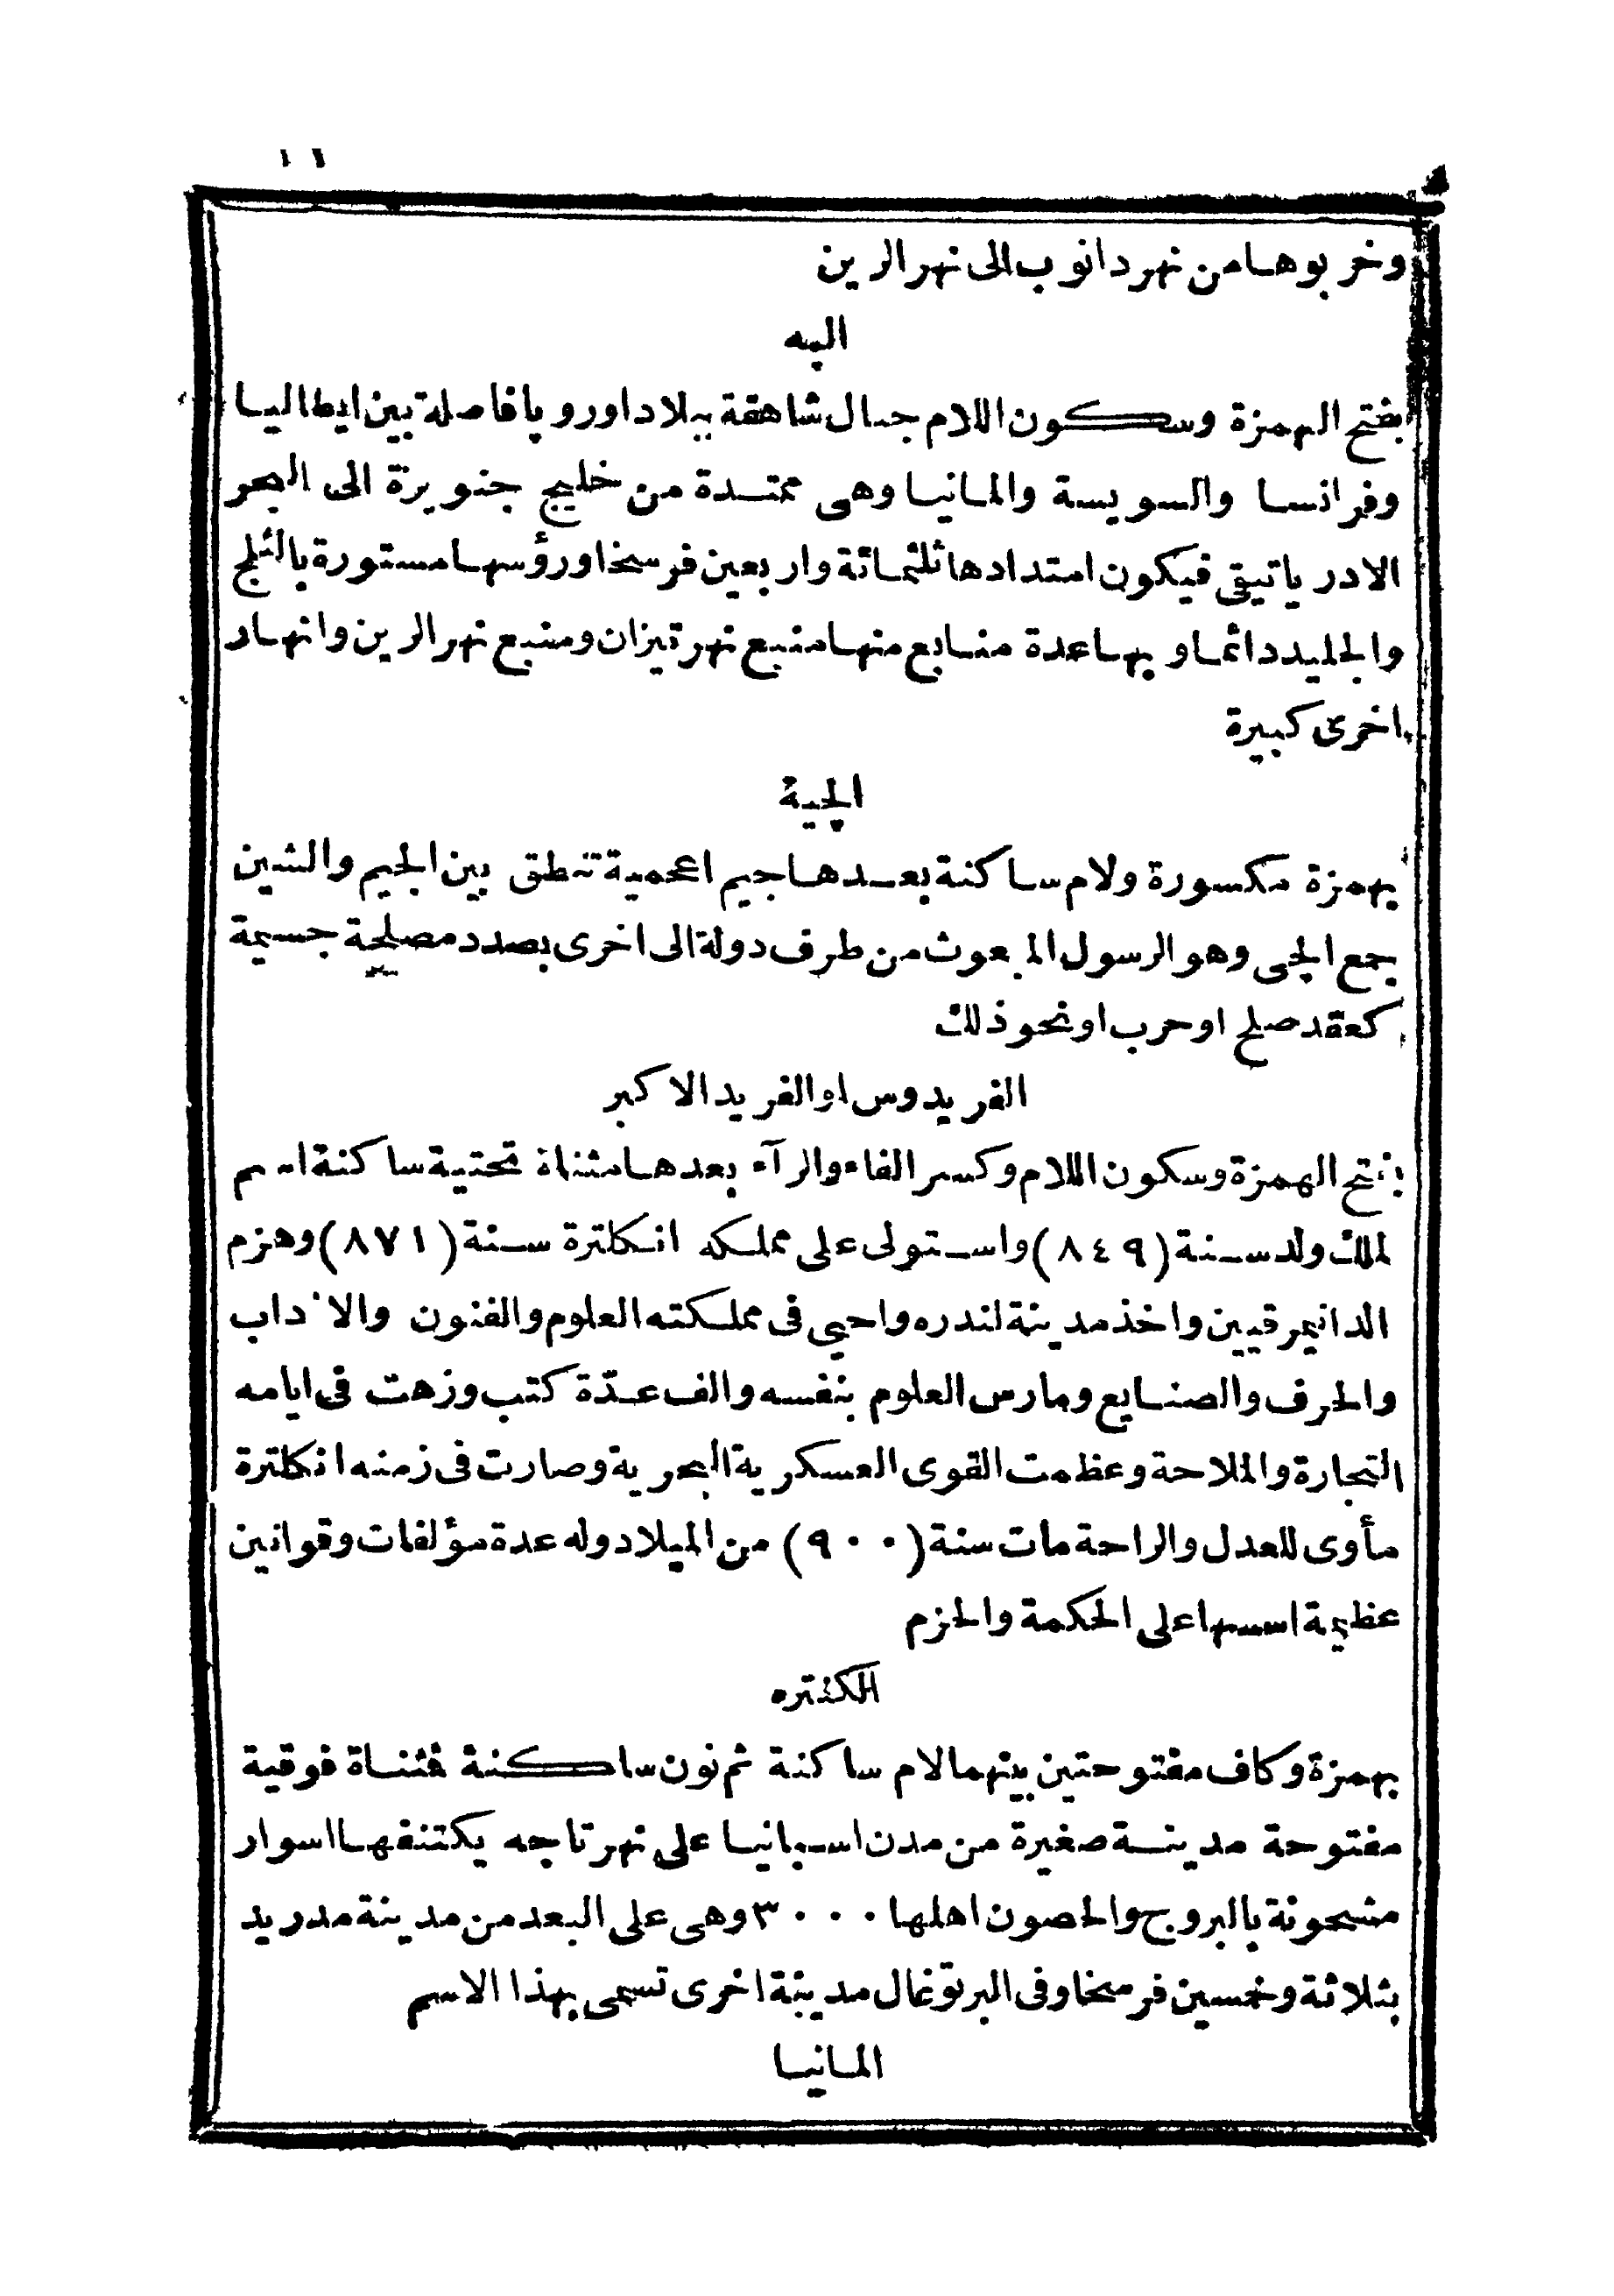 ١١
وخربوها من نهر دانوب الى نهر الرين
الپه
بفتح الهمزة وسكون اللام جبال شاهقة ببلاد اوروپا فاصلة بين ايطاليا
وفرانسا والسويسة والمانيا وهى ممتدة من خليج جنويزة الى البحر
الادرياتيقى فيكون امتدادها ثلثمائة واربعين فرسخا ورؤسها مستورة بالثلج
والجليد دائما وبها عدة منابع منها منبع نهر تيزان ومنبع نهر الرين وانهار
اخرى كبيرة
الچية
بهمزة مكسورة ولام ساكنة بعدها جيم اعجمية تنطق بين الجيم والشين
جمع الچى وهو الرسول المبعوث من طرف دولة الى اخرى بصدد مصلحة جسيمة
كعقد صلح او حرب او نحو ذلك
الفريدوس او الفريد الاكبر
بفتح الهمزة وسكون اللام وكسر الفاء والرآء بعدها مثناة تحتية ساكنة اسم
لملك ولد سنة (٨٤٩) واستولى على مملكه انكلترة سنة (٨٧١) وهزم
الدانيمرقيين واخذ مدينة لندره واحيي فى مملكته العلوم والفنون والاداب
والحرف والصنايع ومارس العلوم بنفسه والف عدّة كتب وزهت فى ايامه
التجارة والملاحة وعظمت القوى العسكرية البحرية وصارت فى زمنه انكلترة
مأوى للعدل والراحة مات سنة (٩٠٠) من الميلاد وله عدة مؤلفات وقوانين
عظيمة اسسها على الحكمة والحزم
الكنتره
بهمزة وكاف مفتوحتين بينهما لام ساكنة ثم نون ساكنة فثناة فوقية
مفتوحة مدينة صغيرة من مدن اسبانيا على نهر تاجه يكتنفها اسوار
مشحونة بالبروج والحصون اهلها ٣٠٠٠ وهى على البعد من مدينة مدريد
بثلاثة وخمسين فرسخا وفى البرتوغال مدينة اخرى تسمى بهذا الاسم
المانيا